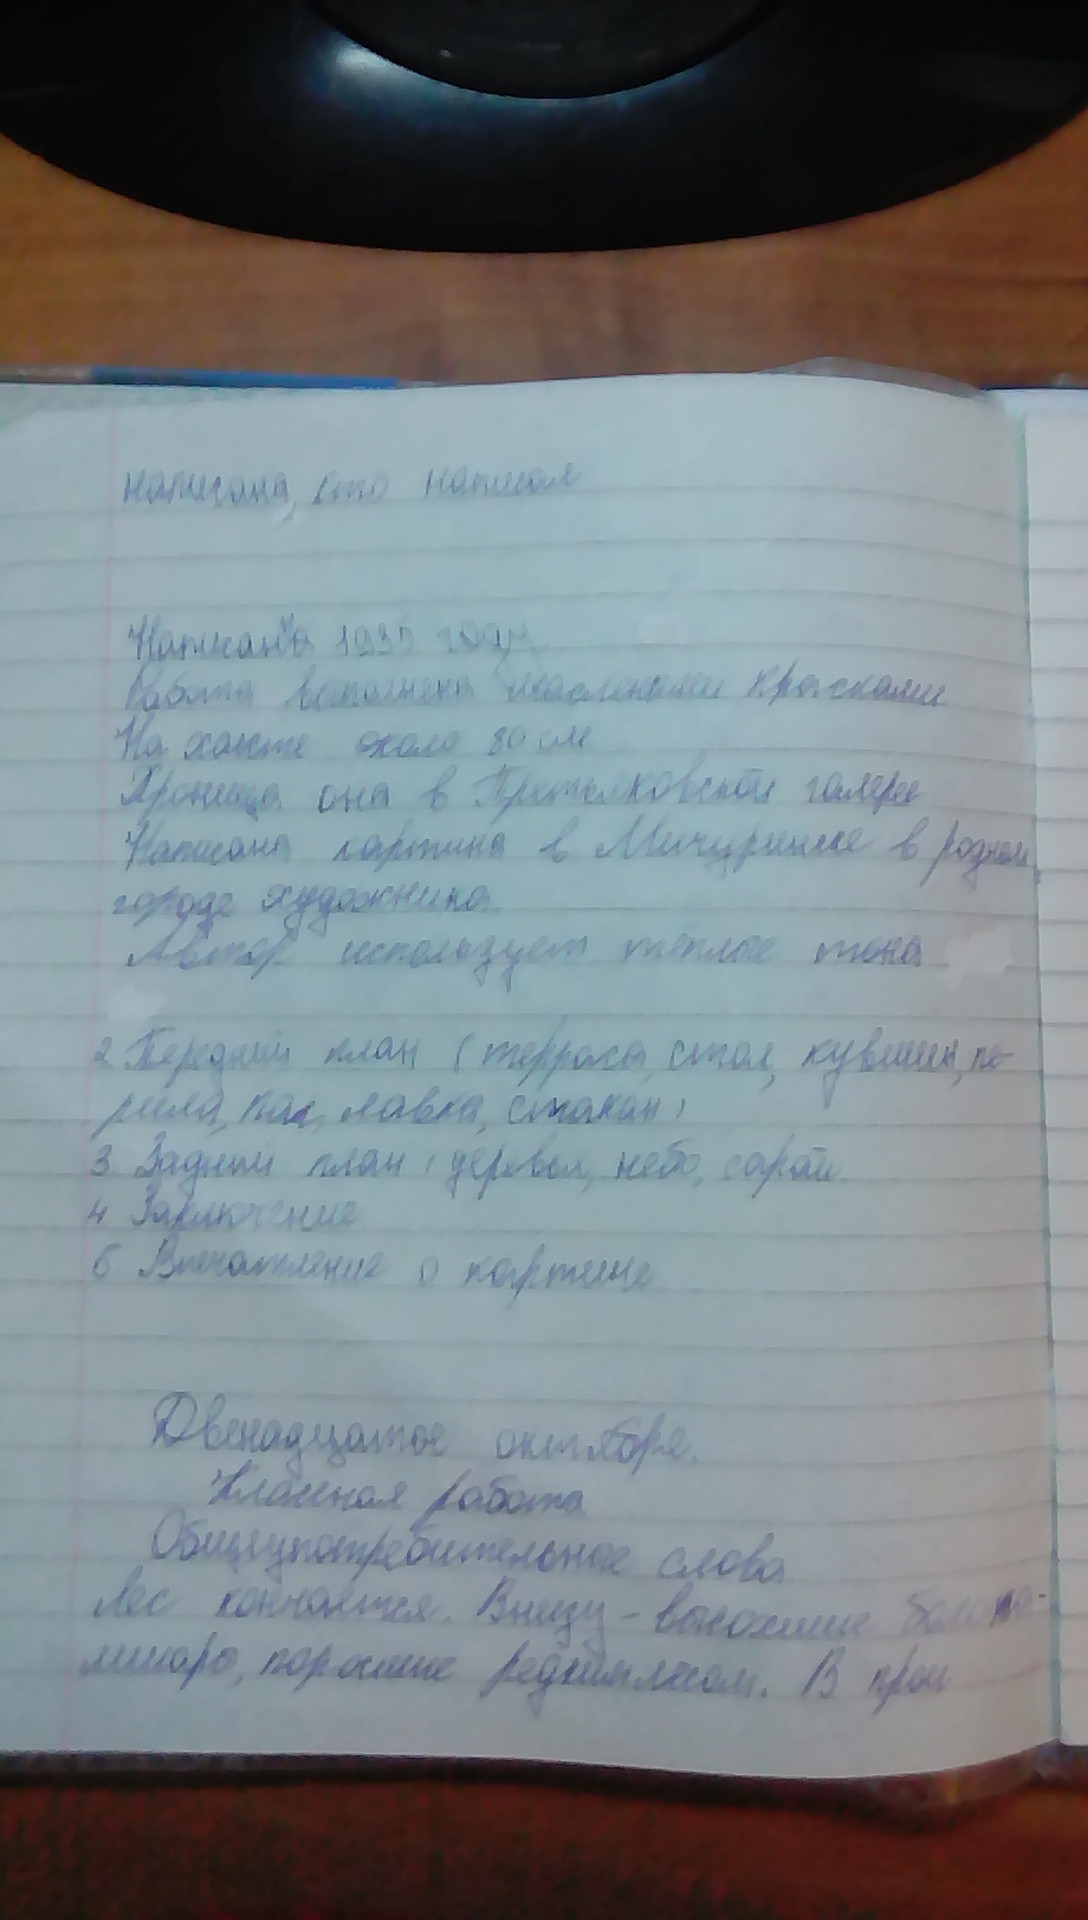 написана, кто написал
Написана 1935 году
Работа выполнена масляными красками
На холсте около 80 см
Хроница она в Третьяковской галереи
Написана картина в Мичуринске в родном
городе художника
Автор использует тёплые тона
2 Передний план (терраса, стол, кувшин, пе-
рила, пол, лавка, стакан)
3. Задний план (деревья, небо, сарай.
4 Заключение
5 Впечатление о картине
Двенадцатое октября.
Классная работа
Общеупотребительные слова
Лес кончается. Внизу - высохшие болота-
мшары, поросшие редким лесом. В прои